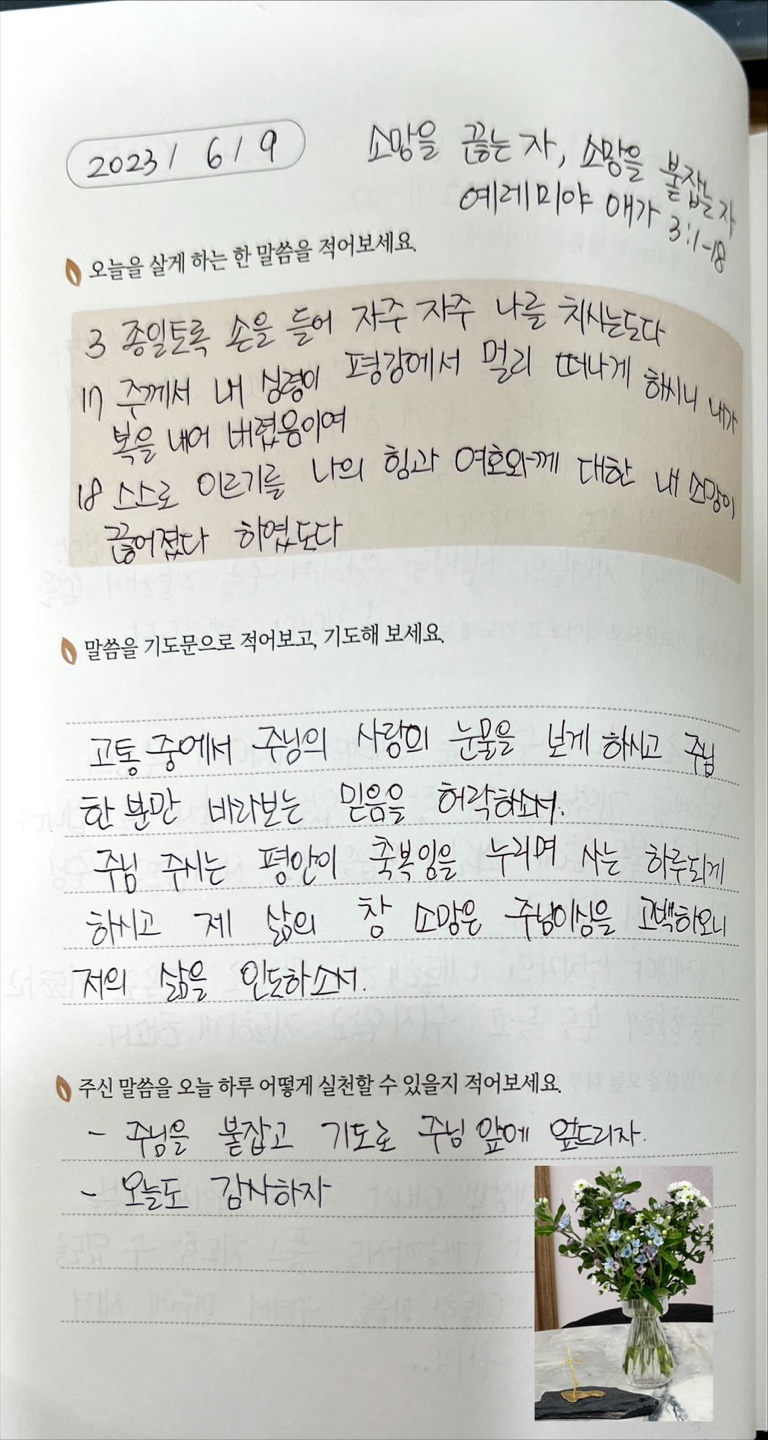 2023 / 6 / 9
소망을 끊는 자, 소망을 붙잡는 자
예레미야 애가 3:1-18
오늘을 살게 하는 한 말씀을 적어보세요.
3 종일토록 손을 들어 자주 자주 나를 치시는도다
17 주께서 내 심령이 평강에서 멀리 떠나게 하시니 내가
복을 내어 버렸음이여
18 스스로 이르기를 나의 힘과 여호와께 대한 내 소망이
끊어졌다 하였도다
말씀을 기도문으로 적어보고, 기도해 보세요.
고통 중에서 주님의 사랑의 눈물을 보게 하시고 주님
한 분만 바라보는 믿음을 허락하소서.
주님 주시는 평안이 축복임을 누리며 사는 하루되게
하시고 제 삶의 참 소망은 주님이심을 고백하오니
저의 삶을 인도하소서.
주신 말씀을 오늘 하루 어떻게 실천할 수 있을지 적어보세요.
- 주님을 붙잡고 기도로 주님 앞에 엎드리자.
- 오늘도 감사하자